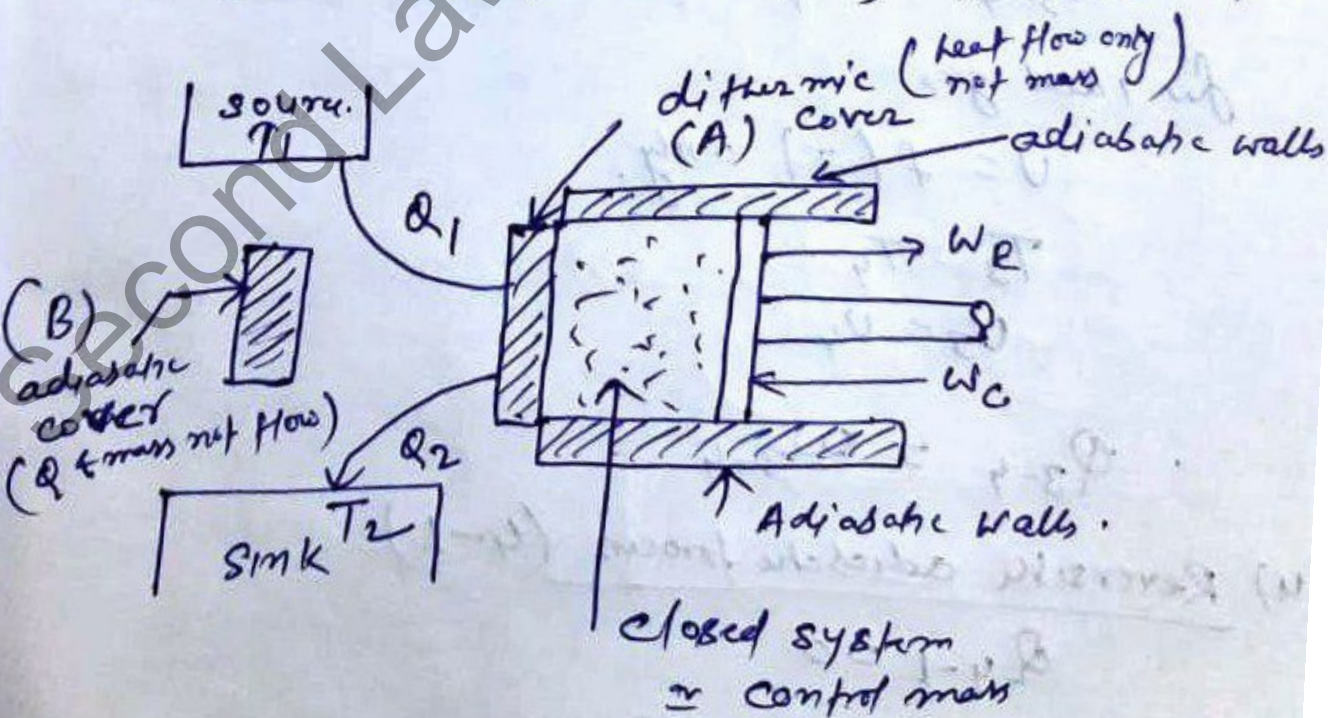 Second La
sourc.
T1
Q1
dithermic (heat flow only
not mass)
(A) cover
adiabatic walls
WE
(B)
adiabatic
cover
(Q & mass not flow)
WC
Q2
T2
Sink
Adiabatic walls.
closed system
≃ control mass